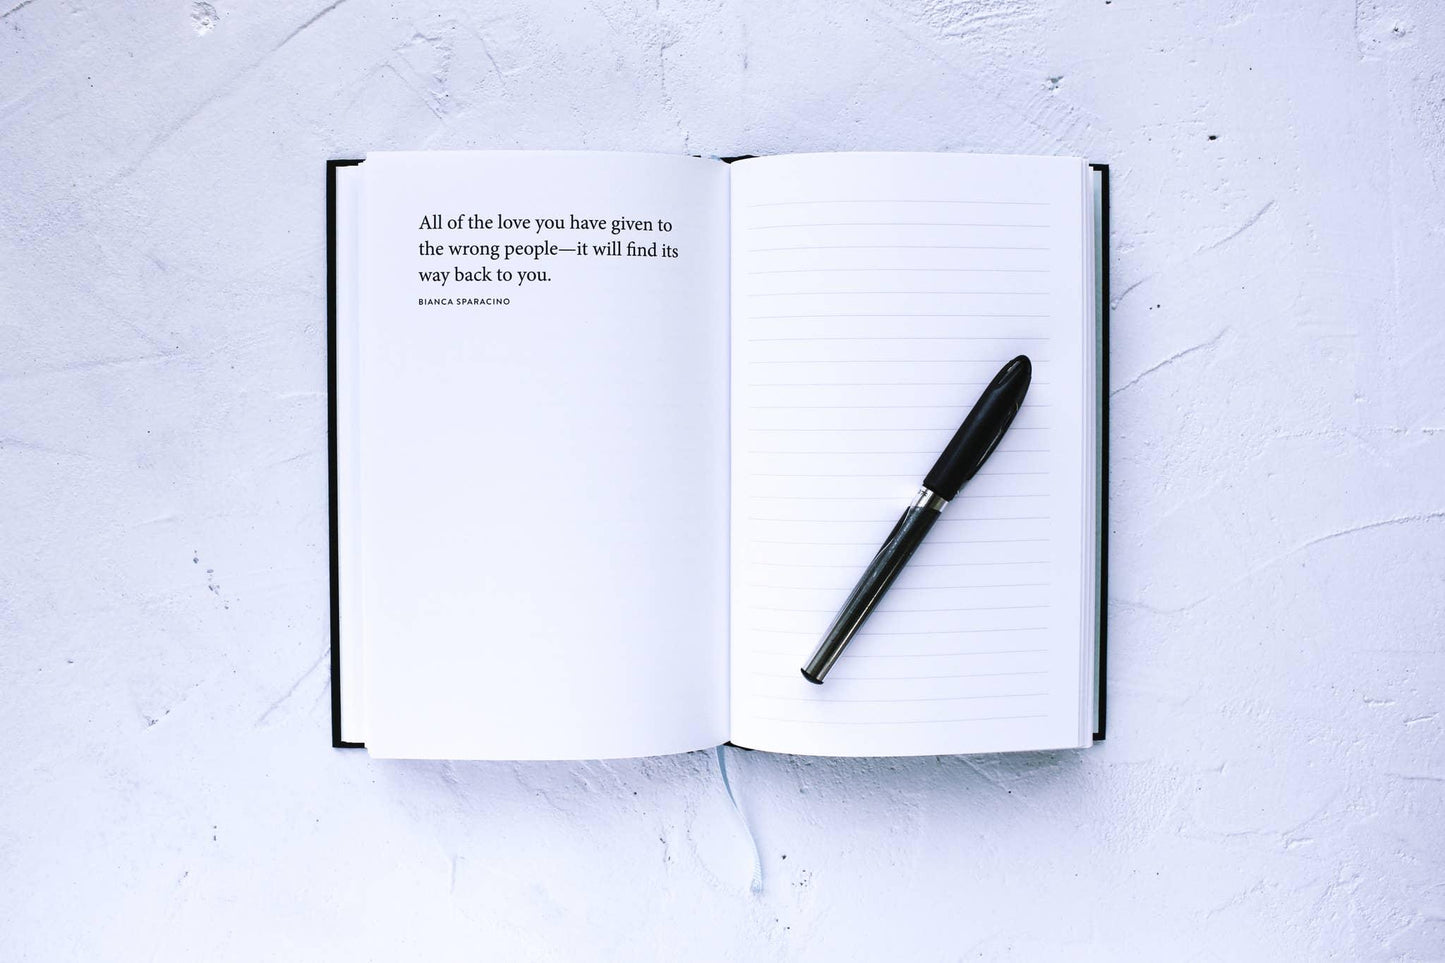 All of the love you have given to
the wrong people—it will find its
way back to you.
BIANCA SPARACINO